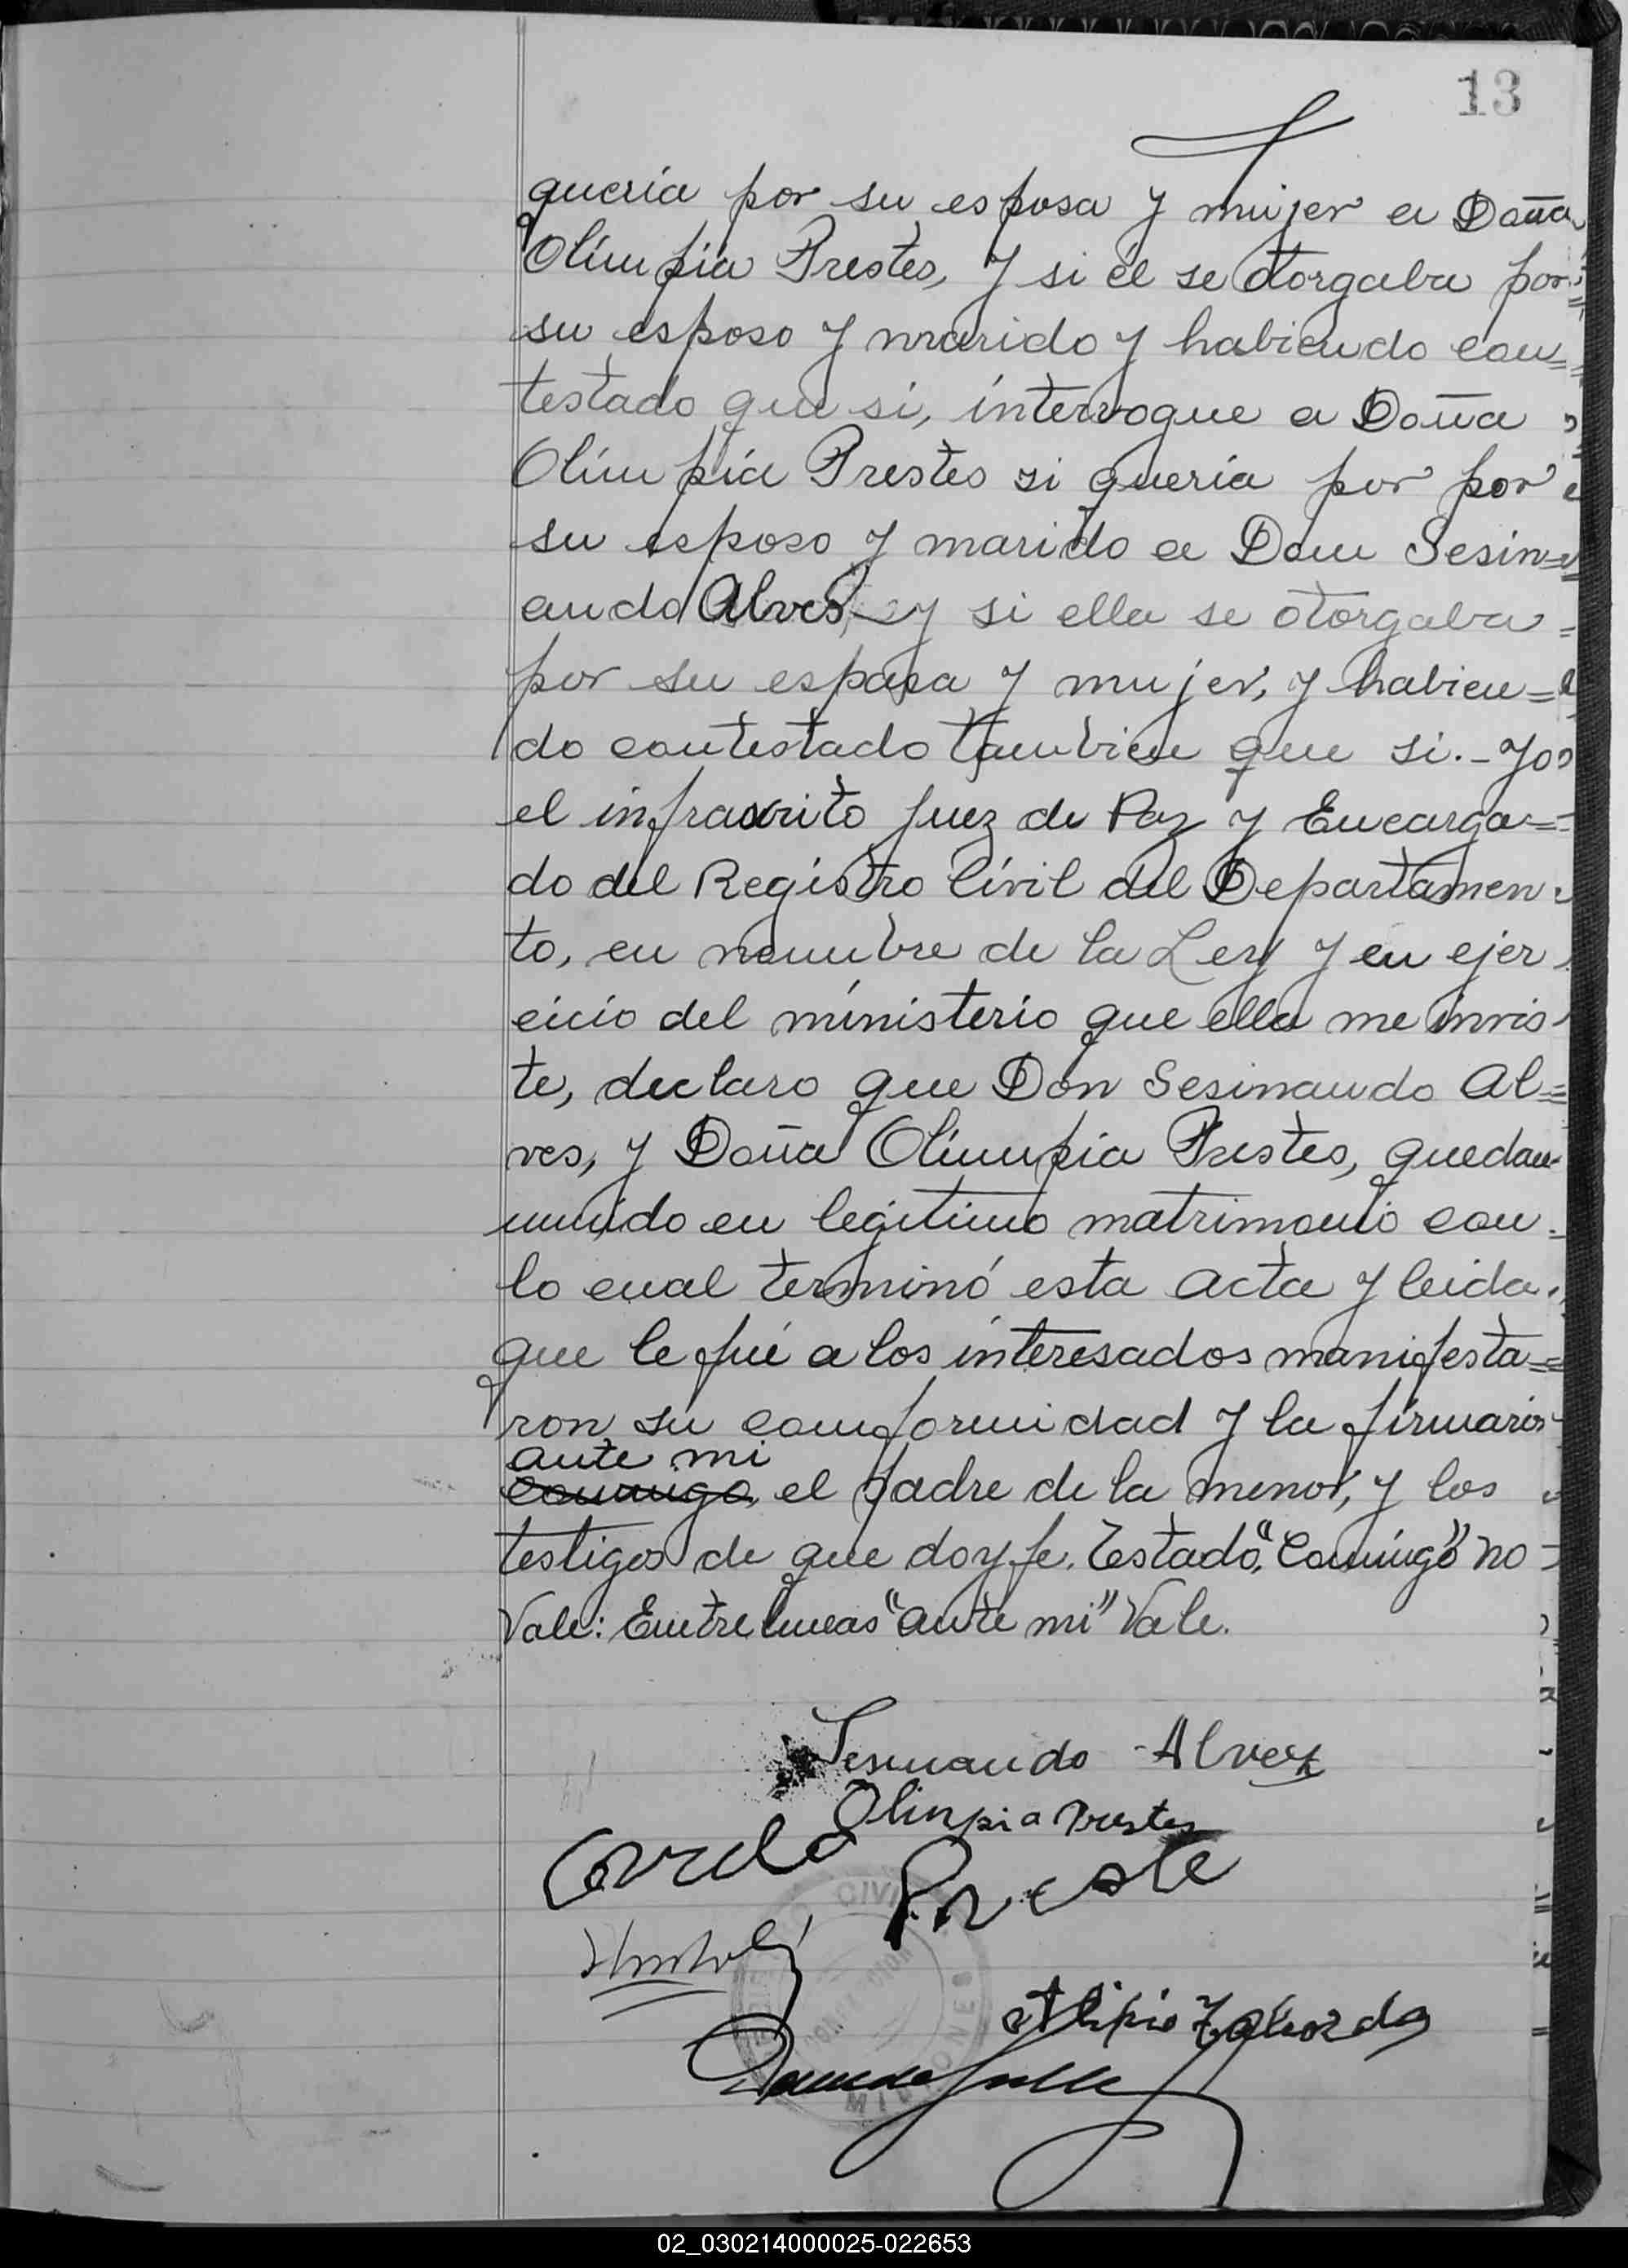 13
queria por su esposa y mujer a Doña
Olimpia Prestes, y si él se otorgaba por
su esposo y marido y habiendo con=
testado que si, interrogue a Doña
Olimpia Prestes si queria por por
su esposo y marido a Don Sesin=
ando Alves y si ella se otorgaba =
por su esposa y mujer, y habien=
do contestado tambien que si.- Yo
el infrascrito Juez de Paz y Encarga=
do del Registro Civil del Departamen
to, en nombre de la Ley y en ejer
cicio del ministerio que ella me invis
te, declaro que Don Sesinando Al=
ves, y Doña Olimpia Prestes, quedan
unido en legitimo matrimonio con
lo cual terminó esta acta y leida
que le fué a los interesados manifesta=
ron su conformidad y la firmaron
ante mi
conmigo, el padre de la menor, y los
testigos de que doy fe. Testado "Conmigo" no
Vale: Entrelineas "ante mi" Vale.
Sesinando Alvez
Olinpia Prestes
Preste
CIVIL
MISIONES
Alipio Taborda
02_030214000025-022653